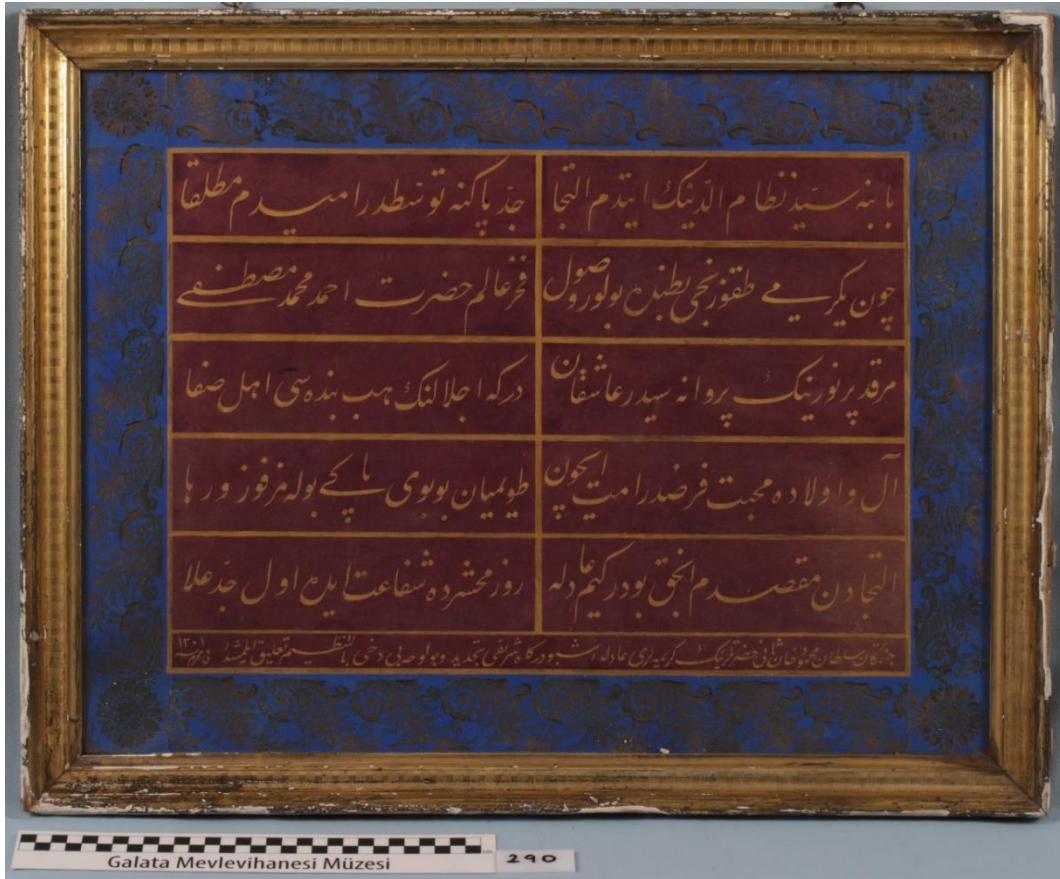 بابنه سید نظام الدینك ایتدم التجا
جد پاکنه توسطدر امیدم مطلقا
چون یکرمی طقوزنجی بطنده بولور وصول
فخر عالم حضرت احمد محمد مصطفی
مرقد پر نورینك پروانه سیدر عاشقان
درکه اجلالنك هب بنده سی اهل صفا
آل و اولاده محبت فرضدر امت ایچون
طویمیان بو بوی پاکی بوله مز فوز و رها
التجادن مقصدم انجق بودر کیم عادله
روز محشرده شفاعت ایده اول جد علا
جنتمکان سلطان محمود خان ثانی حضرتلرینك کریمه لری عادله اشبو درکاه شریفی تجدید و بو لوحه یی دخی بالتنظیم تعلیق ایلمشدر فی محرم سنه ١٣٠١
Galata Mevlevihanesi Müzesi
290